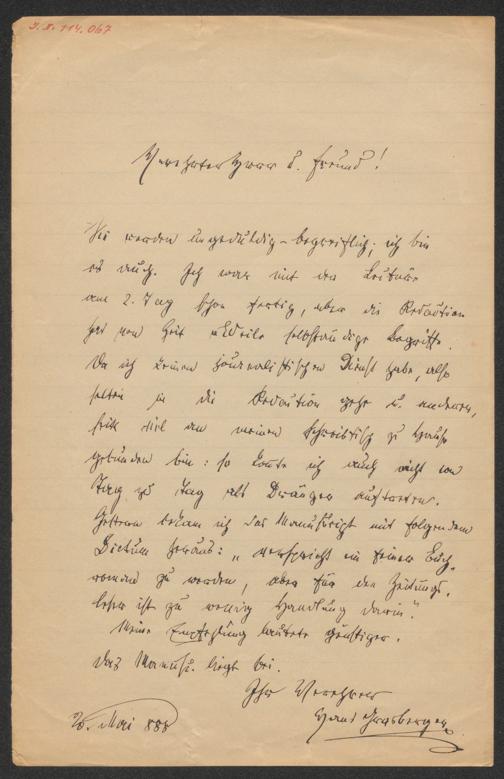 J.N. 114.067
Verehrter Herr u. Freund!
Sie werden ungeduldig – begreiflich; ich bin
es auch. Ich war mit der Lectüre
am 2. Tag schon fertig, aber die Redaction
hat von Zeit u Weile selbständige Begriffe.
Da ich keinen journalistischen Dienst habe, also
selten in die Redaction gehe u. anderer-
seits viel an meinen Schreibtisch zu Hause
gebunden bin: so konnte ich auch nicht von
Tag zu Tag als Dränger auftreten.
Gestern bekam ich das Manuscript mit folgendem
Dictum heraus: „verspricht ein feiner Buch-
roman zu werden, aber für den Zeitungs-
leser ist zu wenig Handlung darin“.
Meine Empfehlung lautete günstiger.
Das Manusc. liegt bei.
Ihr Verehrer
Hans Grasberger
20. Mai 888